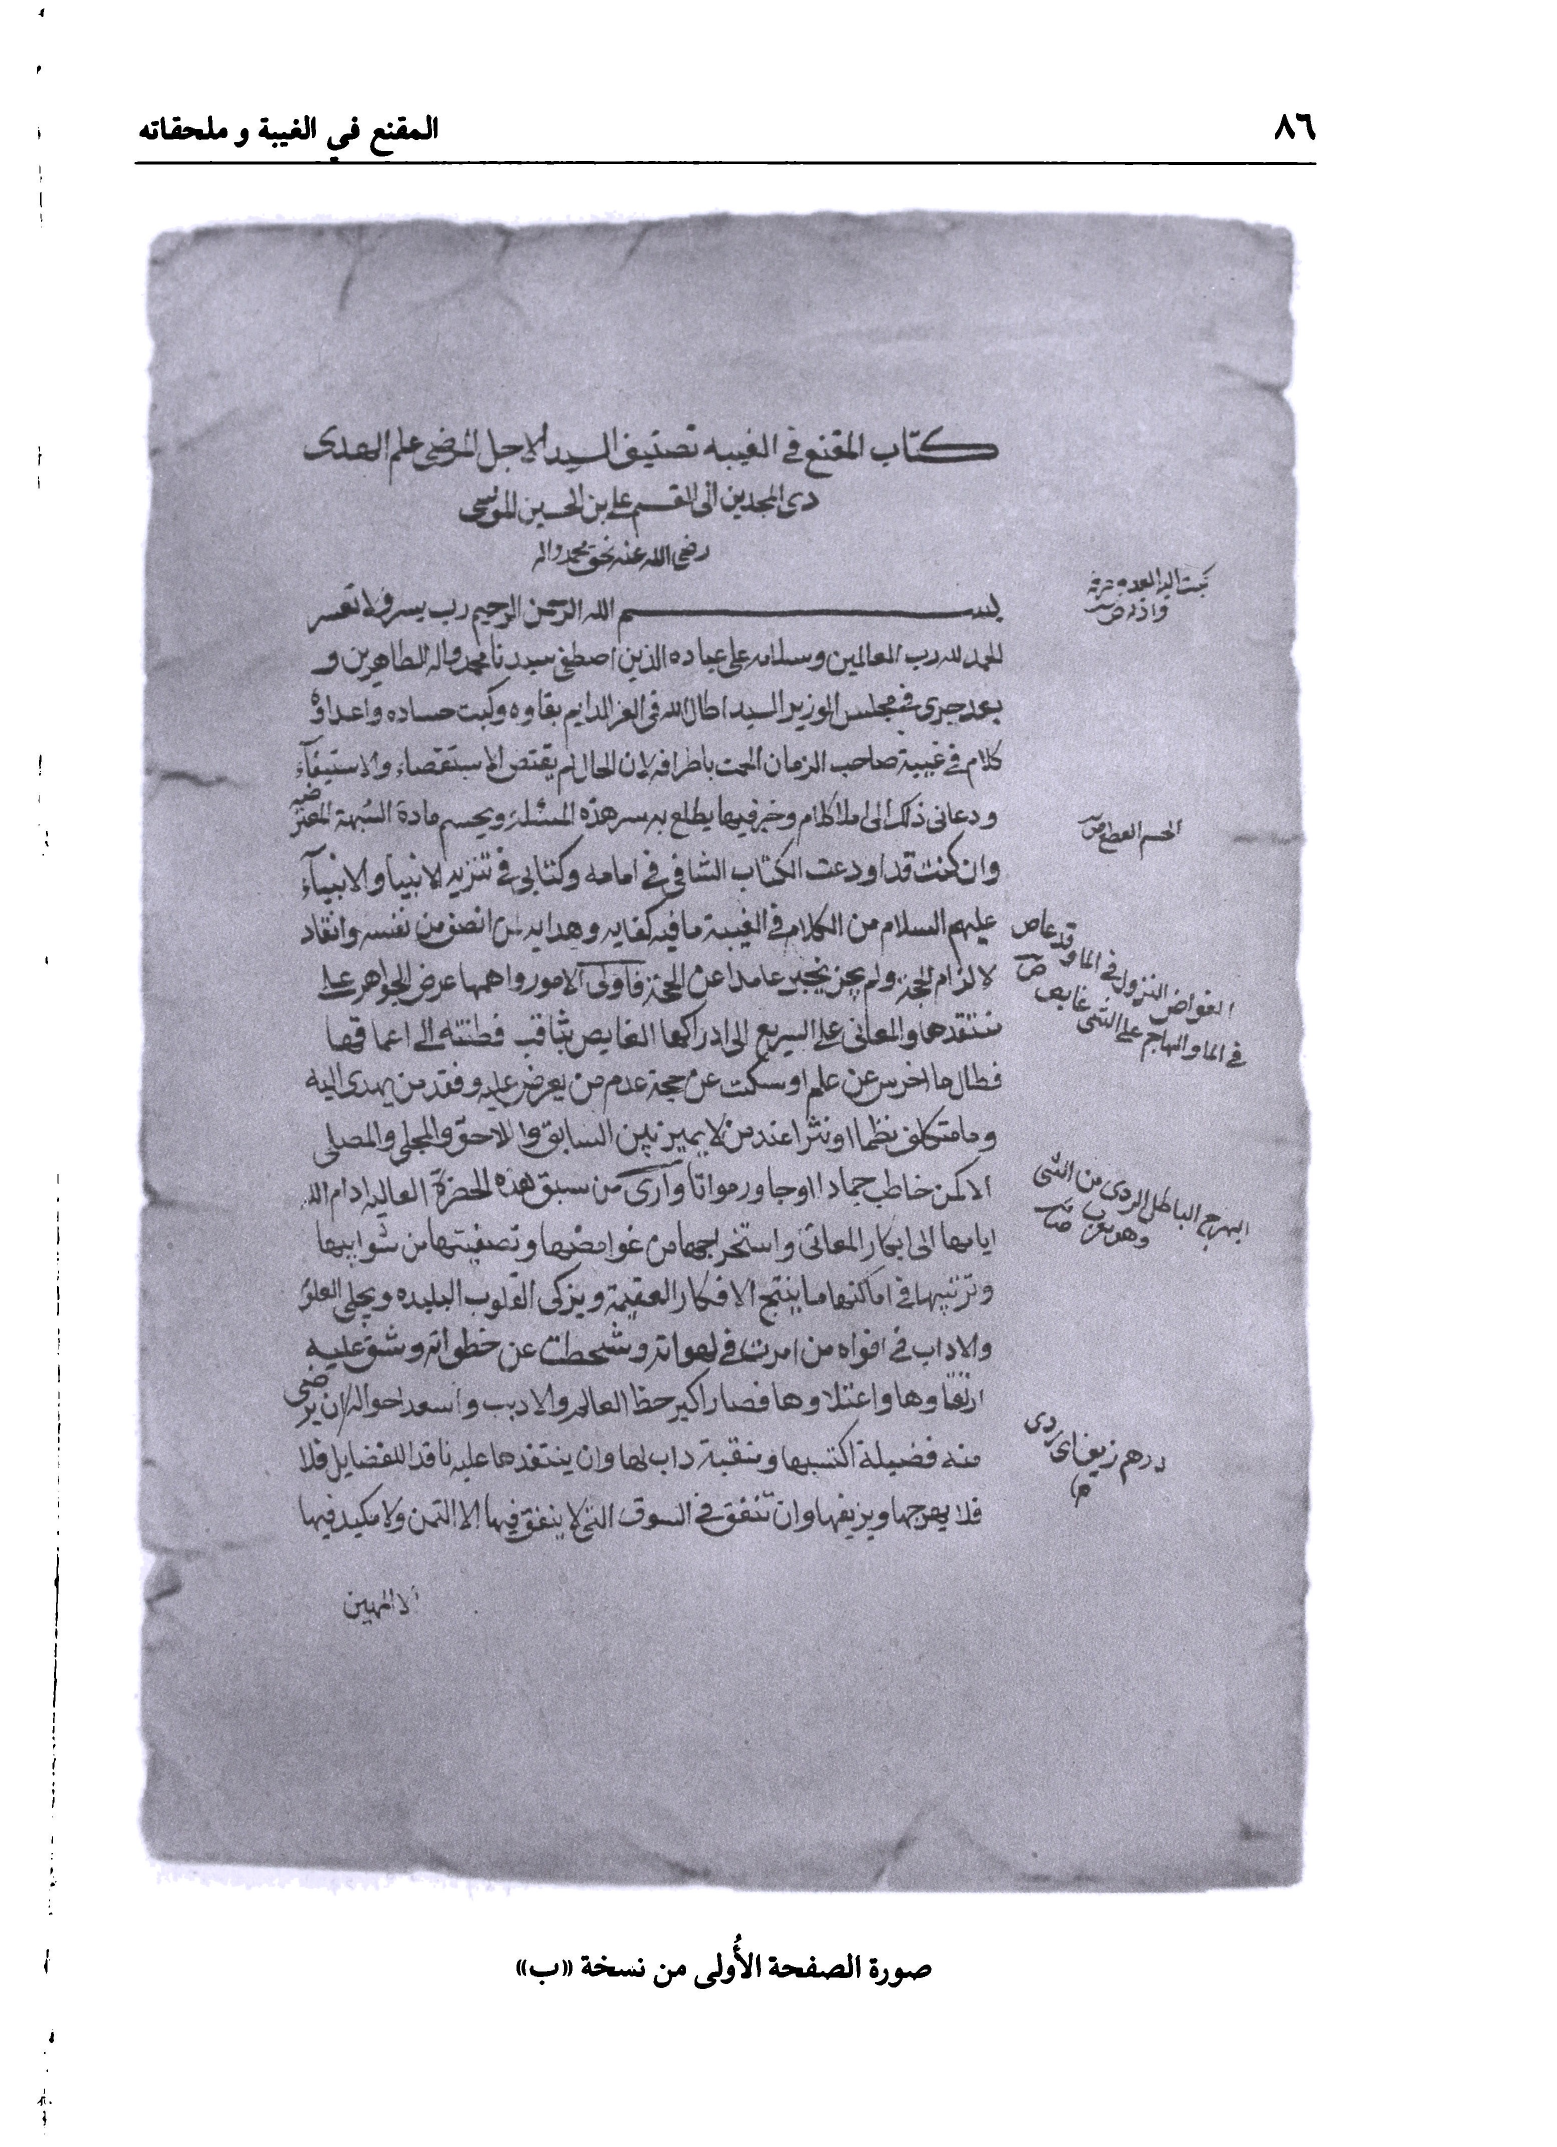 ٨٦
المقنع في الغيبة و ملحقاته
كتاب المقنع في الغيبه تصنيف السيد الاجل المرتضى علم الهدى
ذى المجدين ابى القسم على بن الحسين الموسى
رضى الله عنه بحق محمد واله
بسم الله الرحمن الرحيم رب يسر ولا تعسر
الحمد لله رب العالمين وسلامه على عباده الذين اصطفى سيدنا محمد واله الطاهرين و
بعد جرى فى مجلس الوزير السيد اطال الله فى العز الدايم بقاوه وكبت حساده واعداؤه
كلام فى غيبة صاحب الزمان الممت باطرافه لان الحال لم يقتض الاستقصاء والاستيفآء
ودعانى ذلك الى املا كلام وخبر فيها يطلع به سر هذه المسئلة ويحسم مادة الشبهة المعترضه
وان كنت قد اودعت الكتاب الشافى فى امامه وكتابى فى تنزيه الانبيا والانبيآء
عليهم السلام من الكلام فى الغيبة ما فيه كفايه وهدايه لمن انصف من نفسه وانقاد
لالزام الحجة ولم يحز تحير عامدا عن المحجة فاولى الامور واهمها عرض الجواهر على
منتقدها والمعانى على السريع الى ادراكها الغايص بثاقب فطنته الى اعماقها
فطال ما اخرس عن علم او سكت عن حجة عدم من يعرض عليه وفقد من يهدى اليه
وما متكلف نظما او نثرا عند من لا يميز بين السابق واللاحق والمجلى والمصلى
الا كمن خاطب جمادا او جاور مواتا وارى من سبق هذه الحضرة العاليه ادام الله
ايامها الى ابكار المعانى واستخراجها من غوامضها وتصفيتها من شوايبها
وترتيبها فى اماكنها ما ينتج الافكار العقيمة ويزكى القلوب البليده ويحلى العلوم
والاداب فى افواه من امرت فى لهواته وشحطت عن خطواته وشق عليه
ارتقاوها واعتلاوها فصار اكبر حظ العالم والاديب واسعد احواله ان يرضى
منه فضيلة اكتسبها ومنقبة داب لها وان ينتقدها عليه ناقد الفضايل فلا
فلا يبهرجها ويزيفها وان تنفق فى السوق التى لا ينفق فيها الا الثمن ولا مكيد فيها
الا المهين
الحسم القطع ص
الغواص النزول فى الما وقد غاص
فى الما والهاجم على الشى غايص ص
البهرج الباطل الردى من الشى
وهو معرب
درهم زيف اى ردى
صورة الصفحة الأُولى من نسخة «ب»